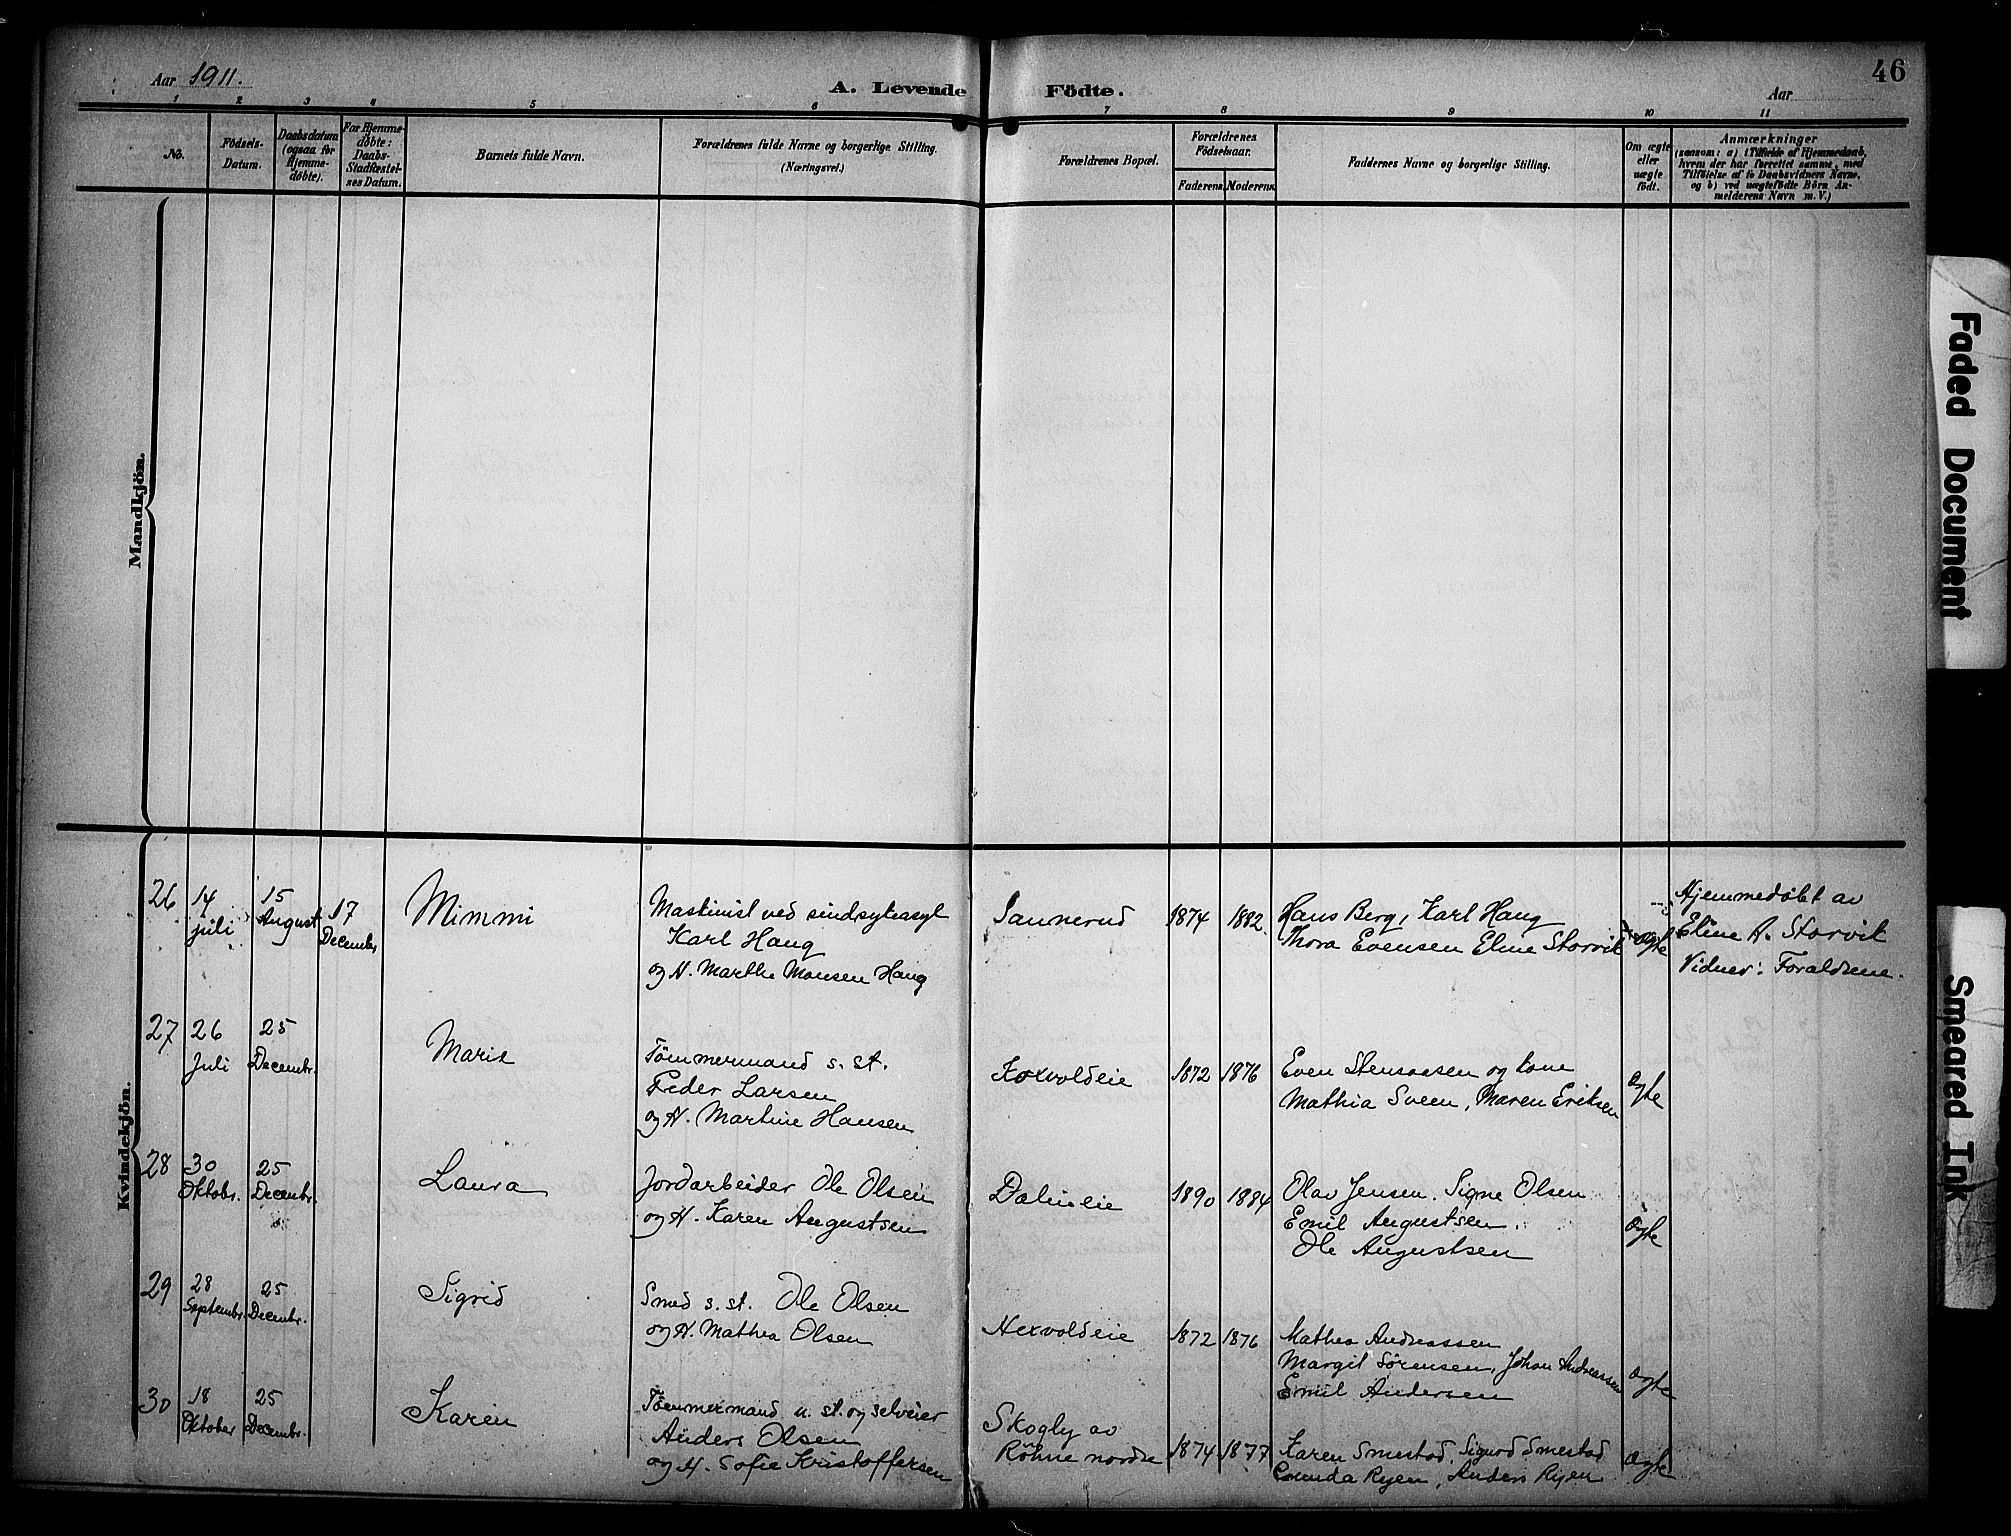 Aar 1911.
A. Levende Födte.
Aar
46
1 2 3 4 5 6 7 8 9 10 11
No.
Födsels-
Datum.
Daabsdatum
(ogsaa for
Hjemme-
döbte).
For Hjemme-
döbte:
Daabs-
Stadfæstel-
ses Datum.
Barnets fulde Navn.
Forældrenes fulde Navne og borgerlige Stilling.
(Næringsvei.)
Forældrenes Bopæl.
Forældrenes
Födselsaar.
Faderens. Moderens.
Faddernes Navne og borgerlige Stilling.
Om ægte
eller
uægte
födt.
Anmærkninger
(saasom: a) i Tilfælde af Hjemmedaab,
hvem der har forrettet samme, med
Tilföielse af to Daabsvidners Navne,
og b) ved uægtefödte Börn An-
melderens Navn m. V.)
Mandkjön.
Kvindekjön.
26
14
juli
15
August
17
Decembr
Mimmi
Maskinist ved sindsykeasyl
Karl Haug
og H. Marthe Monsen Haug
Sannerud
1874
1882.
Hans Berg, Karl Haug
Thora Evensen Eline Storvik
ægte
Hjemmedøbt av
Eline A. Storvik
Vidner: Forældrene.
27
26
Juli
25
Decembr.
Marie
Tømmermand s. st.
Peder Larsen
og H. Martine Hansen
Koxvoldeie
1872
1876
Even Stensaasen og kone
Mathia Sveen, Maren Eriksen
ægte
28
30
Oktobr.
25
Decembr.
Laura
Jordarbeider Ole Olsen
og H. Karen Augustsen
Dalineie
1890
1884
Olav Jensen. Signe Olsen
Emil Augustsen.
Ole Augustsen
ægte
29
28
Septembr.
25
Decembr.
Sigrid
Smed s. st. Ole Olsen
og H. Mathea Olsen
Nexvoldeie
1872
1876
Mathea Andreassen
Margit Sørensen, Johan Andreassen
Emil Andersen
ægte
30
18
Oktober
25
Decembr.
Karen
Tømmermand u. st. og selveier
Anders Olsen
og H. Sofie Kristoffersen
Skogly av
Röhne nordre
1874
1877
Karen Smestad, Sigurd Smestad
Ryen, Anders Ryen
Ægte
Faded Document
Smeared Ink